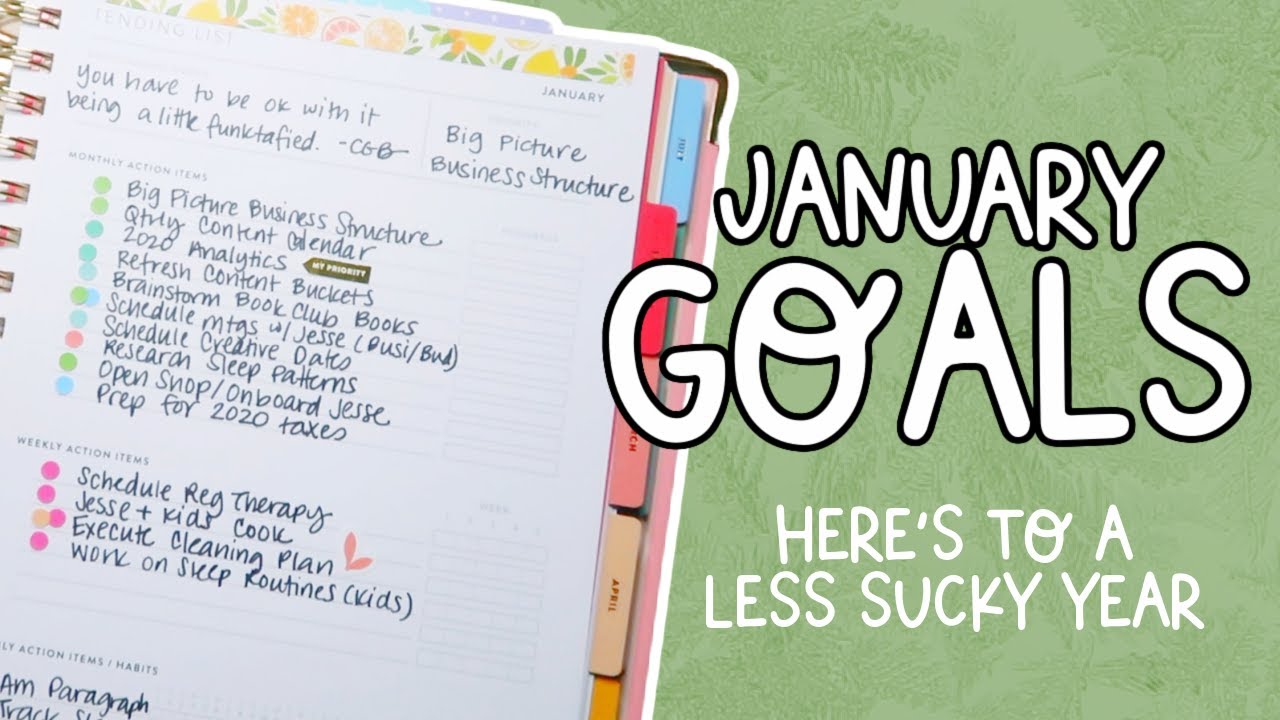 TENDING LIST
JANUARY
You have to be ok with it
being a little funktafied. -CGB
PRIORITY
Big Picture
Business Structure
MONTHLY ACTION ITEMS
PROGRESS
Big Picture Business Structure
Qtrly Content Calendar
2020 Analytics
MY PRIORITY
Refresh Content Buckets
Brainstorm Book Club Books
Schedule mtgs w/ Jesse (Busi/Bud)
Schedule Creative Dates
Research Sleep Patterns
Open Shop/Onboard Jesse
Prep for 2020 taxes
WEEKLY ACTION ITEMS
WEEK
Schedule Reg Therapy
Jesse + Kids Cook
Execute Cleaning Plan
Work on Sleep Routines (Kids)
LY ACTION ITEMS / HABITS
Am Paragraph
Track
APRIL
JANUARY
GOALS
HERE'S TO A
LESS SUCKY YEAR